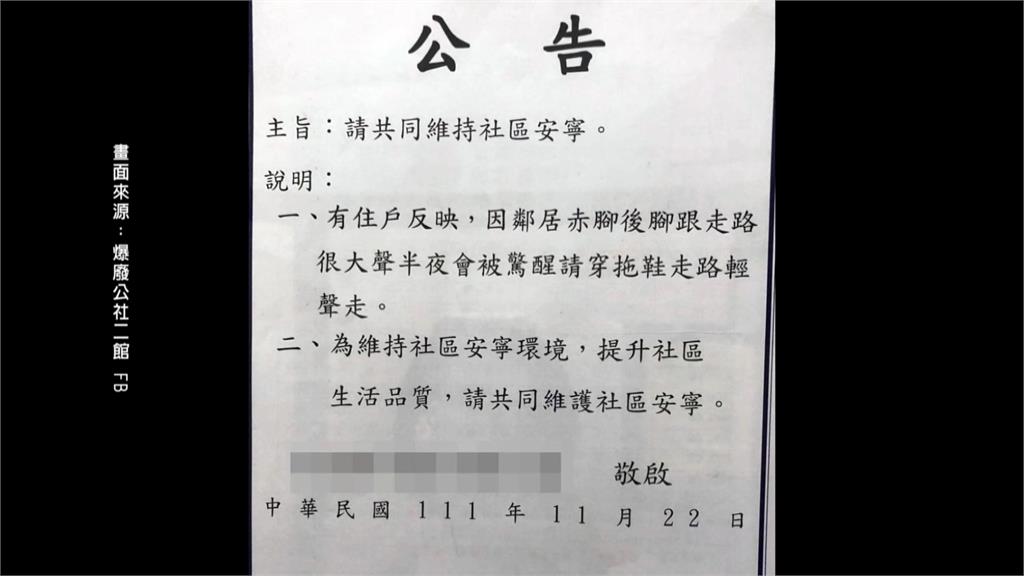 公 告
主旨：請共同維持社區安寧。
說明：
一、有住戶反映，因鄰居赤腳後腳跟走路
很大聲半夜會被驚醒請穿拖鞋走路輕
聲走。
二、為維持社區安寧環境，提升社區
生活品質，請共同維護社區安寧。
敬啟
中華民國 111 年 11 月 22 日
畫面來源：爆廢公社二館 FB